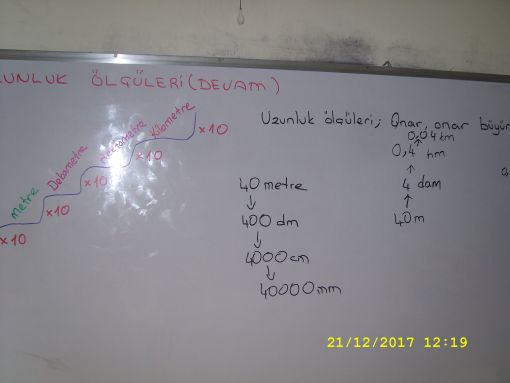 UNLUK ÖLÇÜLERİ (DEVAM)
Metre
Dekametre
Hektometre
Kilometre
x10
x10
x10
x10
x10
Uzunluk ölçüleri; Onar, onar büyür
0,04 km
↑
0,4 hm
↑
4 dam
↑
40 m
40 metre
↓
400 dm
↓
4000 cm
↓
40000 mm
21/12/2017 12:19